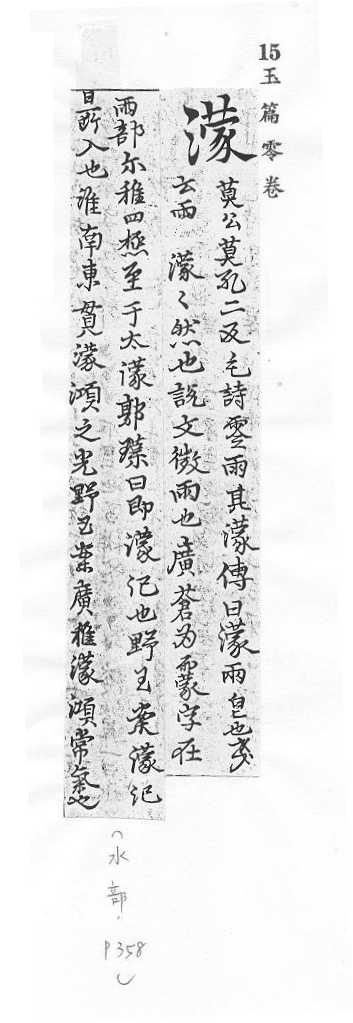 15 玉篇零卷
濛 莫公莫孔二反毛詩零雨其濛傳曰濛雨皃也戔
云雨濛〻然也說文微雨也廣蒼为靀字在
雨部尔雅四極至于太濛郭璞曰即濛汜也野王案濛汜
日所入也淮南東貫濛澒之光野王案廣雅濛澒常氣也
(水部.
P358)